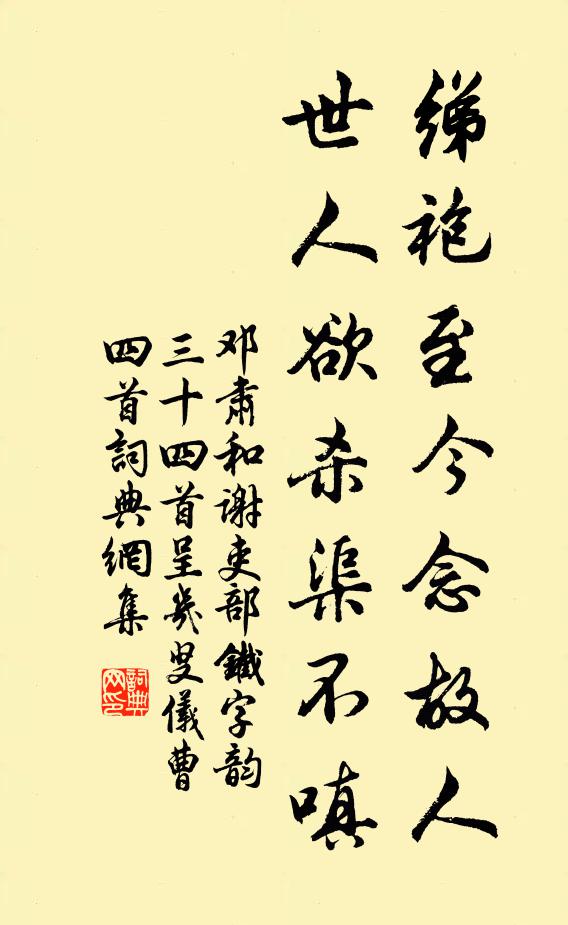 绨袍至今念故人
世人欲杀渠不嗔
邓肅和谢吏部鐵字韵
三十四首呈幾叟儀曹
四首詞典網集
詞典
网印